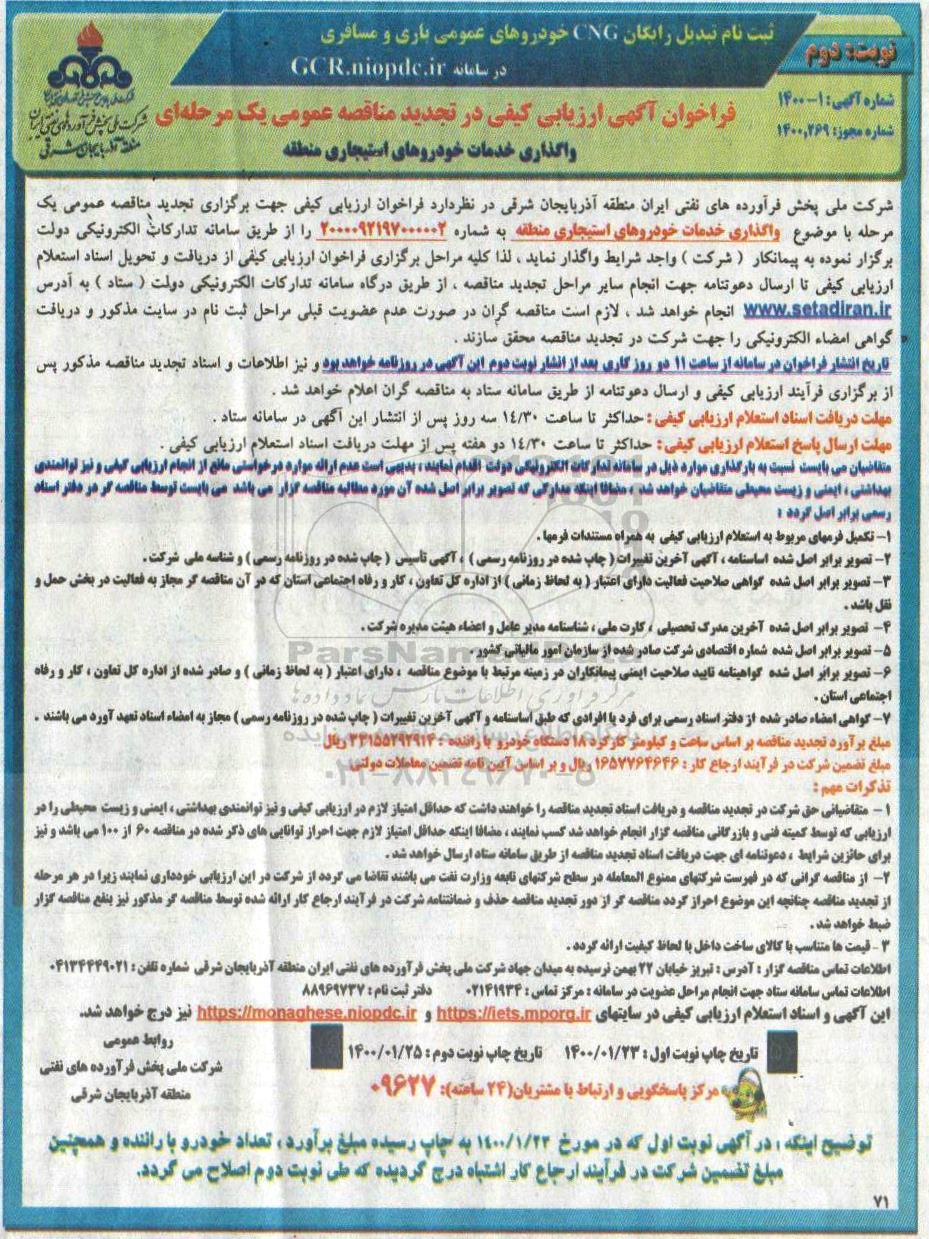 ثبت نام تبدیل رایگان CNG خودروهای عمومی باری و مسافری
در سامانه GCR.niopdc.ir
نوبت: دوم
شماره آگهی: ۱-۱۴۰۰
شماره مجوز: ۱۴۰۰,۲۶۹
شرکت ملی پخش فرآورده‌های نفتی ایران
منطقه آذربایجان شرقی
فراخوان آگهی ارزیابی کیفی در تجدید مناقصه عمومی یک مرحله‌ای
واگذاری خدمات خودروهای استیجاری منطقه
شرکت ملی پخش فرآورده های نفتی ایران منطقه آذربایجان شرقی در نظردارد فراخوان ارزیابی کیفی جهت برگزاری تجدید مناقصه عمومی یک
مرحله با موضوع واگذاری خدمات خودروهای استیجاری منطقه به شماره ۲۰۰۰۰۹۲۱۹۷۰۰۰۰۰۲ را از طریق سامانه تدارکات الکترونیکی دولت
برگزار نموده به پیمانکار ( شرکت ) واجد شرایط واگذار نماید ، لذا کلیه مراحل برگزاری فراخوان ارزیابی کیفی از دریافت و تحویل اسناد استعلام
ارزیابی کیفی تا ارسال دعوتنامه جهت انجام سایر مراحل تجدید مناقصه ، از طریق درگاه سامانه تدارکات الکترونیکی دولت ( ستاد ) به آدرس
www.setadiran.ir انجام خواهد شد ، لازم است مناقصه گران در صورت عدم عضویت قبلی مراحل ثبت نام در سایت مذکور و دریافت
گواهی امضاء الکترونیکی را جهت شرکت در تجدید مناقصه محقق سازند .
تاریخ انتشار فراخوان در سامانه از ساعت ۱۱ دو روز کاری بعد از انشار نوبت دوم این آگهی در روزنامه خواهد بود و نیز اطلاعات و اسناد تجدید مناقصه مذکور پس
از برگزاری فرآیند ارزیابی کیفی و ارسال دعوتنامه از طریق سامانه ستاد به مناقصه گران اعلام خواهد شد .
مهلت دریافت اسناد استعلام ارزیابی کیفی : حداکثر تا ساعت ۱۴/۳۰ سه روز پس از انتشار این آگهی در سامانه ستاد .
مهلت ارسال پاسخ استعلام ارزیابی کیفی : حداکثر تا ساعت ۱۴/۳۰ دو هفته پس از مهلت دریافت اسناد استعلام ارزیابی کیفی .
متقاضیان می بایست نسبت به بارگذاری موارد ذیل در سامانه تدارکات الکترونیکی دولت اقدام نمایند ، بدیهی است عدم ارائه موارد درخواستی مانع از انجام ارزیابی کیفی و نیز توانمندی
بهداشتی ، ایمنی و زیست محیطی متقاضیان خواهد شد ، مضافا اینکه مدارکی که تصویر برابر اصل شده آن مورد مطالبه مناقصه گزار می باشد می بایست توسط مناقصه گر در دفتر اسناد
رسمی برابر اصل گردد :
۱- تکمیل فرمهای مربوط به استعلام ارزیابی کیفی به همراه مستندات فرمها .
۲- تصویر برابر اصل شده اساسنامه ، آگهی آخرین تغییرات ( چاپ شده در روزنامه رسمی ) ، آگهی تأسیس ( چاپ شده در روزنامه رسمی ) و شناسه ملی شرکت .
۳- تصویر برابر اصل شده گواهی صلاحیت فعالیت دارای اعتبار ( به لحاظ زمانی ) از اداره کل تعاون ، کار و رفاه اجتماعی استان که در آن مناقصه گر مجاز به فعالیت در بخش حمل و
نقل باشد .
۴- تصویر برابر اصل شده آخرین مدرک تحصیلی ، کارت ملی ، شناسنامه مدیر عامل و اعضاء هیئت مدیره شرکت .
۵- تصویر برابر اصل شده شماره اقتصادی شرکت صادر شده از سازمان امور مالیاتی کشور .
۶- تصویر برابر اصل شده گواهینامه تایید صلاحیت ایمنی پیمانکاران در زمینه مرتبط با موضوع مناقصه ، دارای اعتبار ( به لحاظ زمانی ) و صادر شده از اداره کل تعاون ، کار و رفاه
اجتماعی استان .
۷- گواهی امضاء صادر شده از دفتر اسناد رسمی برای فرد یا افرادی که طبق اساسنامه و آگهی آخرین تغییرات ( چاپ شده در روزنامه رسمی ) مجاز به امضاء اسناد تعهد آورد می باشند .
مبلغ برآورد تجدید مناقصه بر اساس ساخت و کیلومتر کارکرد ۱۸ دستگاه خودرو با راننده : ۳۳۱۵۵۲۹۲۹۱۴ ریال
مبلغ تضمین شرکت در فرآیند ارجاع کار : ۱۶۵۷۷۶۴۶۴۶ ریال و بر اساس آیین نامه تضمین معاملات دولتی
تذکرات مهم :
۱- متقاضیانی حق شرکت در تجدید مناقصه و دریافت اسناد تجدید مناقصه را خواهند داشت که حداقل امتیاز لازم در ارزیابی کیفی و نیز توانمندی بهداشتی ، ایمنی و زیست محیطی را در
ارزیابی که توسط کمیته فنی و بازرگانی مناقصه گزار انجام خواهد شد کسب نمایند ، مضافا اینکه حداقل امتیاز لازم جهت احراز توانایی های ذکر شده در مناقصه ۶۰ از ۱۰۰ می باشد و نیز
برای حائزین شرایط ، دعوتنامه ای جهت دریافت اسناد تجدید مناقصه از طریق سامانه ستاد ارسال خواهد شد .
۲- از مناقصه گرانی که در فهرست شرکتهای ممنوع المعامله در سطح شرکتهای تابعه وزارت نفت می باشند تقاضا می گردد از شرکت در این ارزیابی خودداری نمایند زیرا در هر مرحله
از تجدید مناقصه چنانچه این موضوع احراز گردد مناقصه گر از دور تجدید مناقصه حذف و ضمانتنامه شرکت در فرآیند ارجاع کار ارائه شده توسط مناقصه گر مذکور نیز بنفع مناقصه گزار
ضبط خواهد شد .
۳- قیمت ها متناسب با کالای ساخت داخل با لحاظ کیفیت ارائه گردد .
اطلاعات تماس مناقصه گزار : آدرس : تبریز خیابان ۲۲ بهمن نرسیده به میدان جهاد شرکت ملی پخش فرآورده های نفتی ایران منطقه آذربایجان شرقی شماره تلفن : ۰۴۱۳۴۴۴۹۰۲۱
اطلاعات تماس سامانه ستاد جهت انجام مراحل عضویت در سامانه : مرکز تماس : ۰۲۱۴۱۹۳۴ دفتر ثبت نام : ۸۸۹۶۹۷۳۷
این آگهی و اسناد استعلام ارزیابی کیفی در سایتهای https://iets.mporg.ir و https://monaghese.niopdc.ir نیز درج خواهد شد.
تاریخ چاپ نوبت اول : ۱۴۰۰/۰۱/۲۳ تاریخ چاپ نوبت دوم : ۱۴۰۰/۰۱/۲۵
مرکز پاسخگویی و ارتباط با مشتریان(۲۴ ساعته): ۰۹۶۲۷
روابط عمومی
شرکت ملی پخش فرآورده های نفتی
منطقه آذربایجان شرقی
توضیح اینکه ، در آگهی نوبت اول که در مورخ ۱۴۰۰/۱/۲۳ به چاپ رسیده مبلغ برآورد ، تعداد خودرو با راننده و همچنین
مبلغ تضمین شرکت در فرآیند ارجاع کار اشتباه درج گردیده که طی نوبت دوم اصلاح می گردد.
۷۱
ParsNamadData
۰۲۱-۸۸۳۴۹۶۷۰-۵